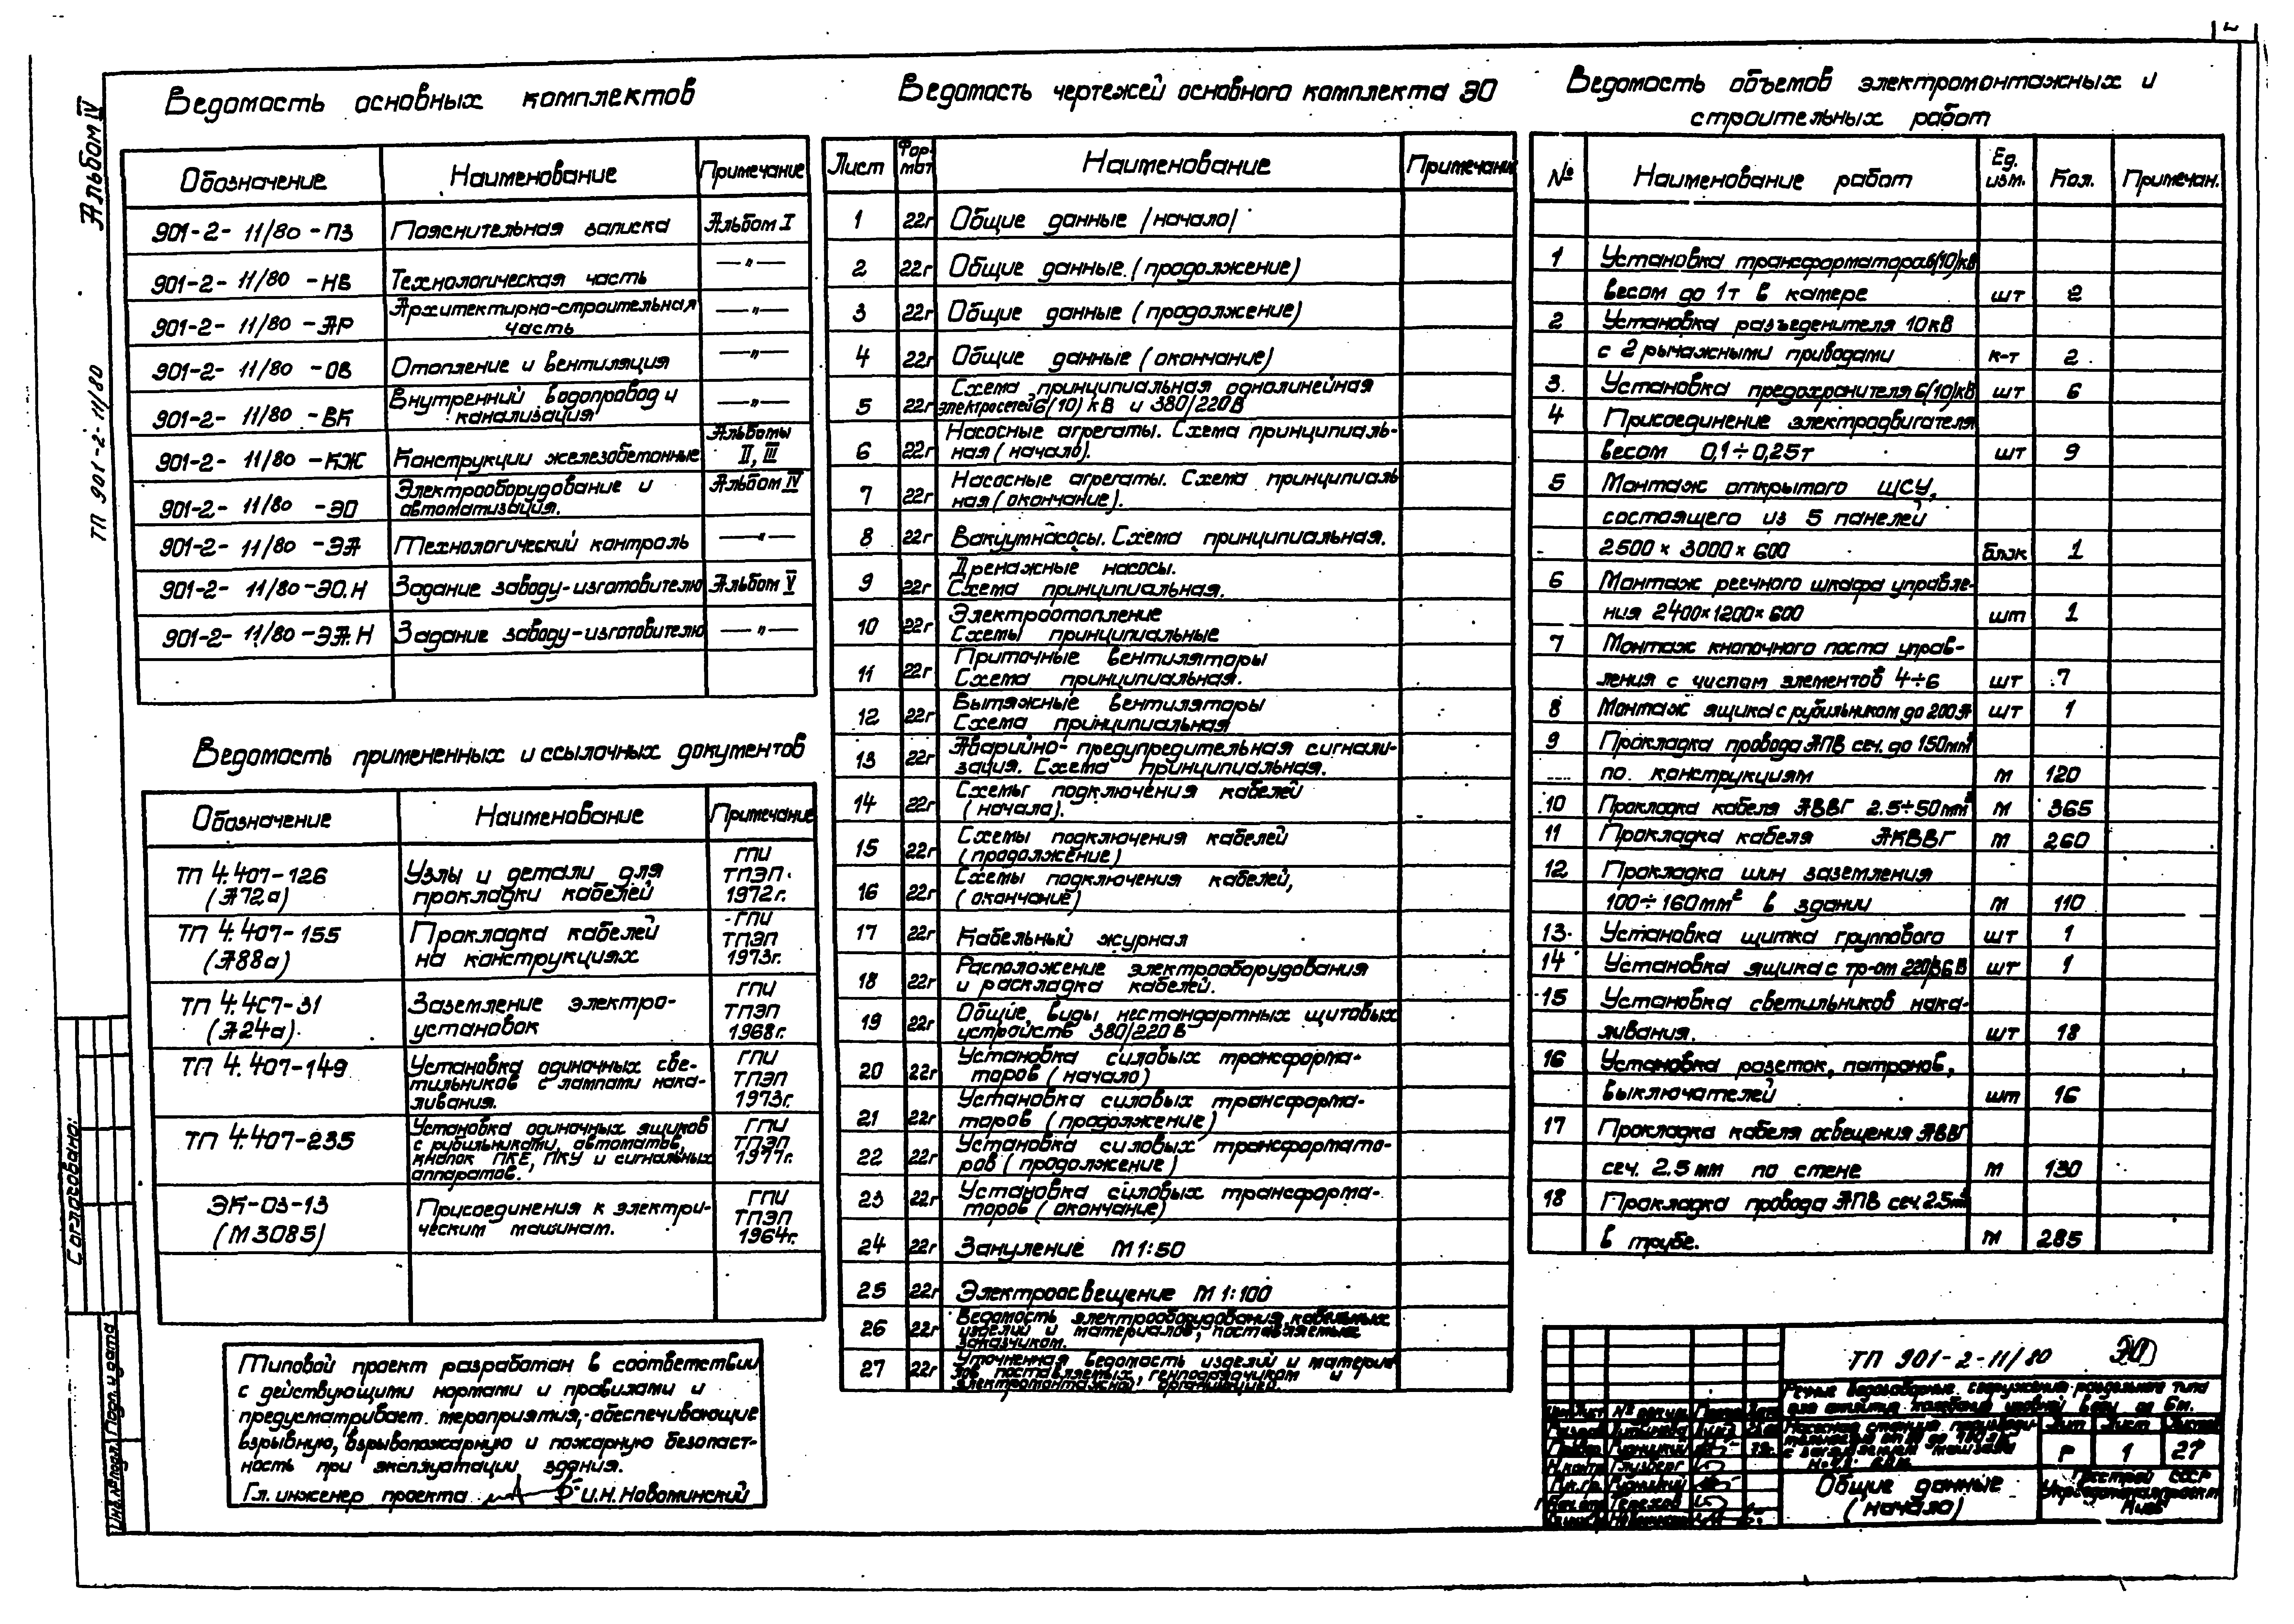 Альбом IV
ТП 901-2-11/80
Ведомость основных комплектов
Обозначение Наименование Примечание
901-2-11/80-ПЗ Пояснительная записка Альбом I
901-2-11/80-НВ Технологическая часть —"—
901-2-11/80-АР Архитектурно-строительная —"—
часть
901-2-11/80-ОВ Отопление и вентиляция —"—
901-2-11/80-ВК Внутренний водопровод и —"—
канализация
901-2-11/80-КЖ Конструкции железобетонные Альбомы
II, III
901-2-11/80-ЭО Электрооборудование и Альбом IV
автоматизация.
901-2-11/80-ЭА Технологический контроль —"—
901-2-11/80-ЭО.Н Задание заводу-изготовителю Альбом V
901-2-11/80-ЭА.Н Задание заводу-изготовителю —"—
Ведомость примененных и ссылочных документов
Обозначение Наименование Примечание
ТП 4.407-126 Узлы и детали для ГПИ
(А72а) прокладки кабелей ТПЭП.
1972г.
ТП 4.407-155 Прокладка кабелей ГПИ
(А88а) на конструкциях ТПЭП
1973г.
ТП 4.407-31 Заземление электро- ГПИ
(А24а) установок ТПЭП
1968г.
ТП 4.407-149 Установка одиночных све- ГПИ
тильников с лампами нака- ТПЭП
ливания. 1973г.
ТП 4.407-235 Установка одиночных ящиков ГПИ
с рубильниками, автоматов, ТПЭП
кнопок ПКЕ, ПКУ и сигнальных 1977г.
аппаратов.
ЭК-03-13 Присоединения к электри- ГПИ
(М3085) ческим машинам. ТПЭП
1964г.
Типовой проект разработан в соответствии
с действующими нормами и правилами и
предусматривает мероприятия, обеспечивающие
взрывную, взрывопожарную и пожарную безопаст-
ность при эксплуатации здания.
Гл. инженер проекта И.Н. Новоминский
Ведомость чертежей основного комплекта ЭО
Лист Фор- Наименование Примечание
мат
1 22г Общие данные (начало)
2 22г Общие данные (продолжение)
3 22г Общие данные (продолжение)
4 22г Общие данные (окончание)
Схема принципиальная однолинейная
5 22г электросетей 6(10) кВ и 380/220В
Насосные агрегаты. Схема принципиаль-
6 22г ная (начало).
Насосные агрегаты. Схема принципиаль-
7 22г ная (окончание).
8 22г Вакуумнасосы. Схема принципиальная.
Дренажные насосы.
9 22г Схема принципиальная.
Электроотопление
10 22г Схемы принципиальные
Приточные вентиляторы
11 22г Схема принципиальная.
Вытяжные вентиляторы
12 22г Схема принципиальная
Аварийно-предупредительная сигнали-
13 22г зация. Схема принципиальная.
Схемы подключения кабелей
14 22г (начало).
Схемы подключения кабелей
15 22г (продолжение)
Схемы подключения кабелей,
16 22г (окончание)
17 22г Кабельный журнал
Расположение электрооборудования
18 22г и раскладка кабелей.
Общие виды нестандартных щитовых
19 22г устройств 380/220 В
Установка силовых трансформа-
20 22г торов (начало)
Установка силовых трансформа-
21 22г торов (продолжение)
Установка силовых трансформато-
22 22г ров (продолжение)
Установка силовых трансформа-
23 22г торов (окончание)
24 22г Зануление М 1:50
25 22г Электроосвещение М 1:100
Ведомость электрооборудования, кабельных
26 22г изделий и материалов, поставляемых
заказчиком.
Уточненная ведомость изделий и материа
27 22г лов поставляемых, генподрядчиком и
электромонтажной организацией.
Ведомость объемов электромонтажных и
строительных работ
№ Наименование работ Ед. изм. Кол. Примечан.
1 Установка трансформатора 6(10)кВ
весом до 1т в камере шт 2
2 Установка разъеденителя 10кВ
с 2 рычажными приводами к-т 2
3. Установка предохранителя 6(10)кВ шт 6
4 Присоединение электродвигателя
весом 0,1÷0,25т шт 9
5 Монтаж открытого ЩСУ,
состоящего из 5 панелей
2500×3000×600 блок 1
6 Монтаж реечного шкафа управле-
ния 2400×1200×600 шт 1
7 Монтаж кнопочного поста управ-
ления с числом элементов 4÷6 шт 7
8 Монтаж ящика с рубильником до 200А шт 1
9 Прокладка провода АПВ сеч. до 150мм²
по конструкциям м 120
10 Прокладка кабеля АВВГ 2.5÷50мм² м 365
11 Прокладка кабеля АКВВГ м 260
12 Прокладка шин заземления
100÷160мм² в здании м 110
13. Установка щитка группового шт 1
14 Установка ящика с тр-ом 220/36 В шт 1
15 Установка светильников нака-
ливания. шт 18
16 Установка розеток, патронов,
выключателей шт 16
17 Прокладка кабеля освещения АВВГ
сеч. 2.5мм по стене м 130
18 Прокладка провода АПВ сеч. 2.5мм²
в трубе. м 285
ТП 901-2-11/80 ЭО
Речные водозаборные сооружения раздельного типа
для амплитуд колебания уровней воды до 6м.
Насосная станция производи-
Лит Лист Листов
Р 1 27
Общие данные
(начало)
Госстрой СССР
Укрводоканалпроект
Киев
Согласовано:
Подп. и дата
Инв. № подл.